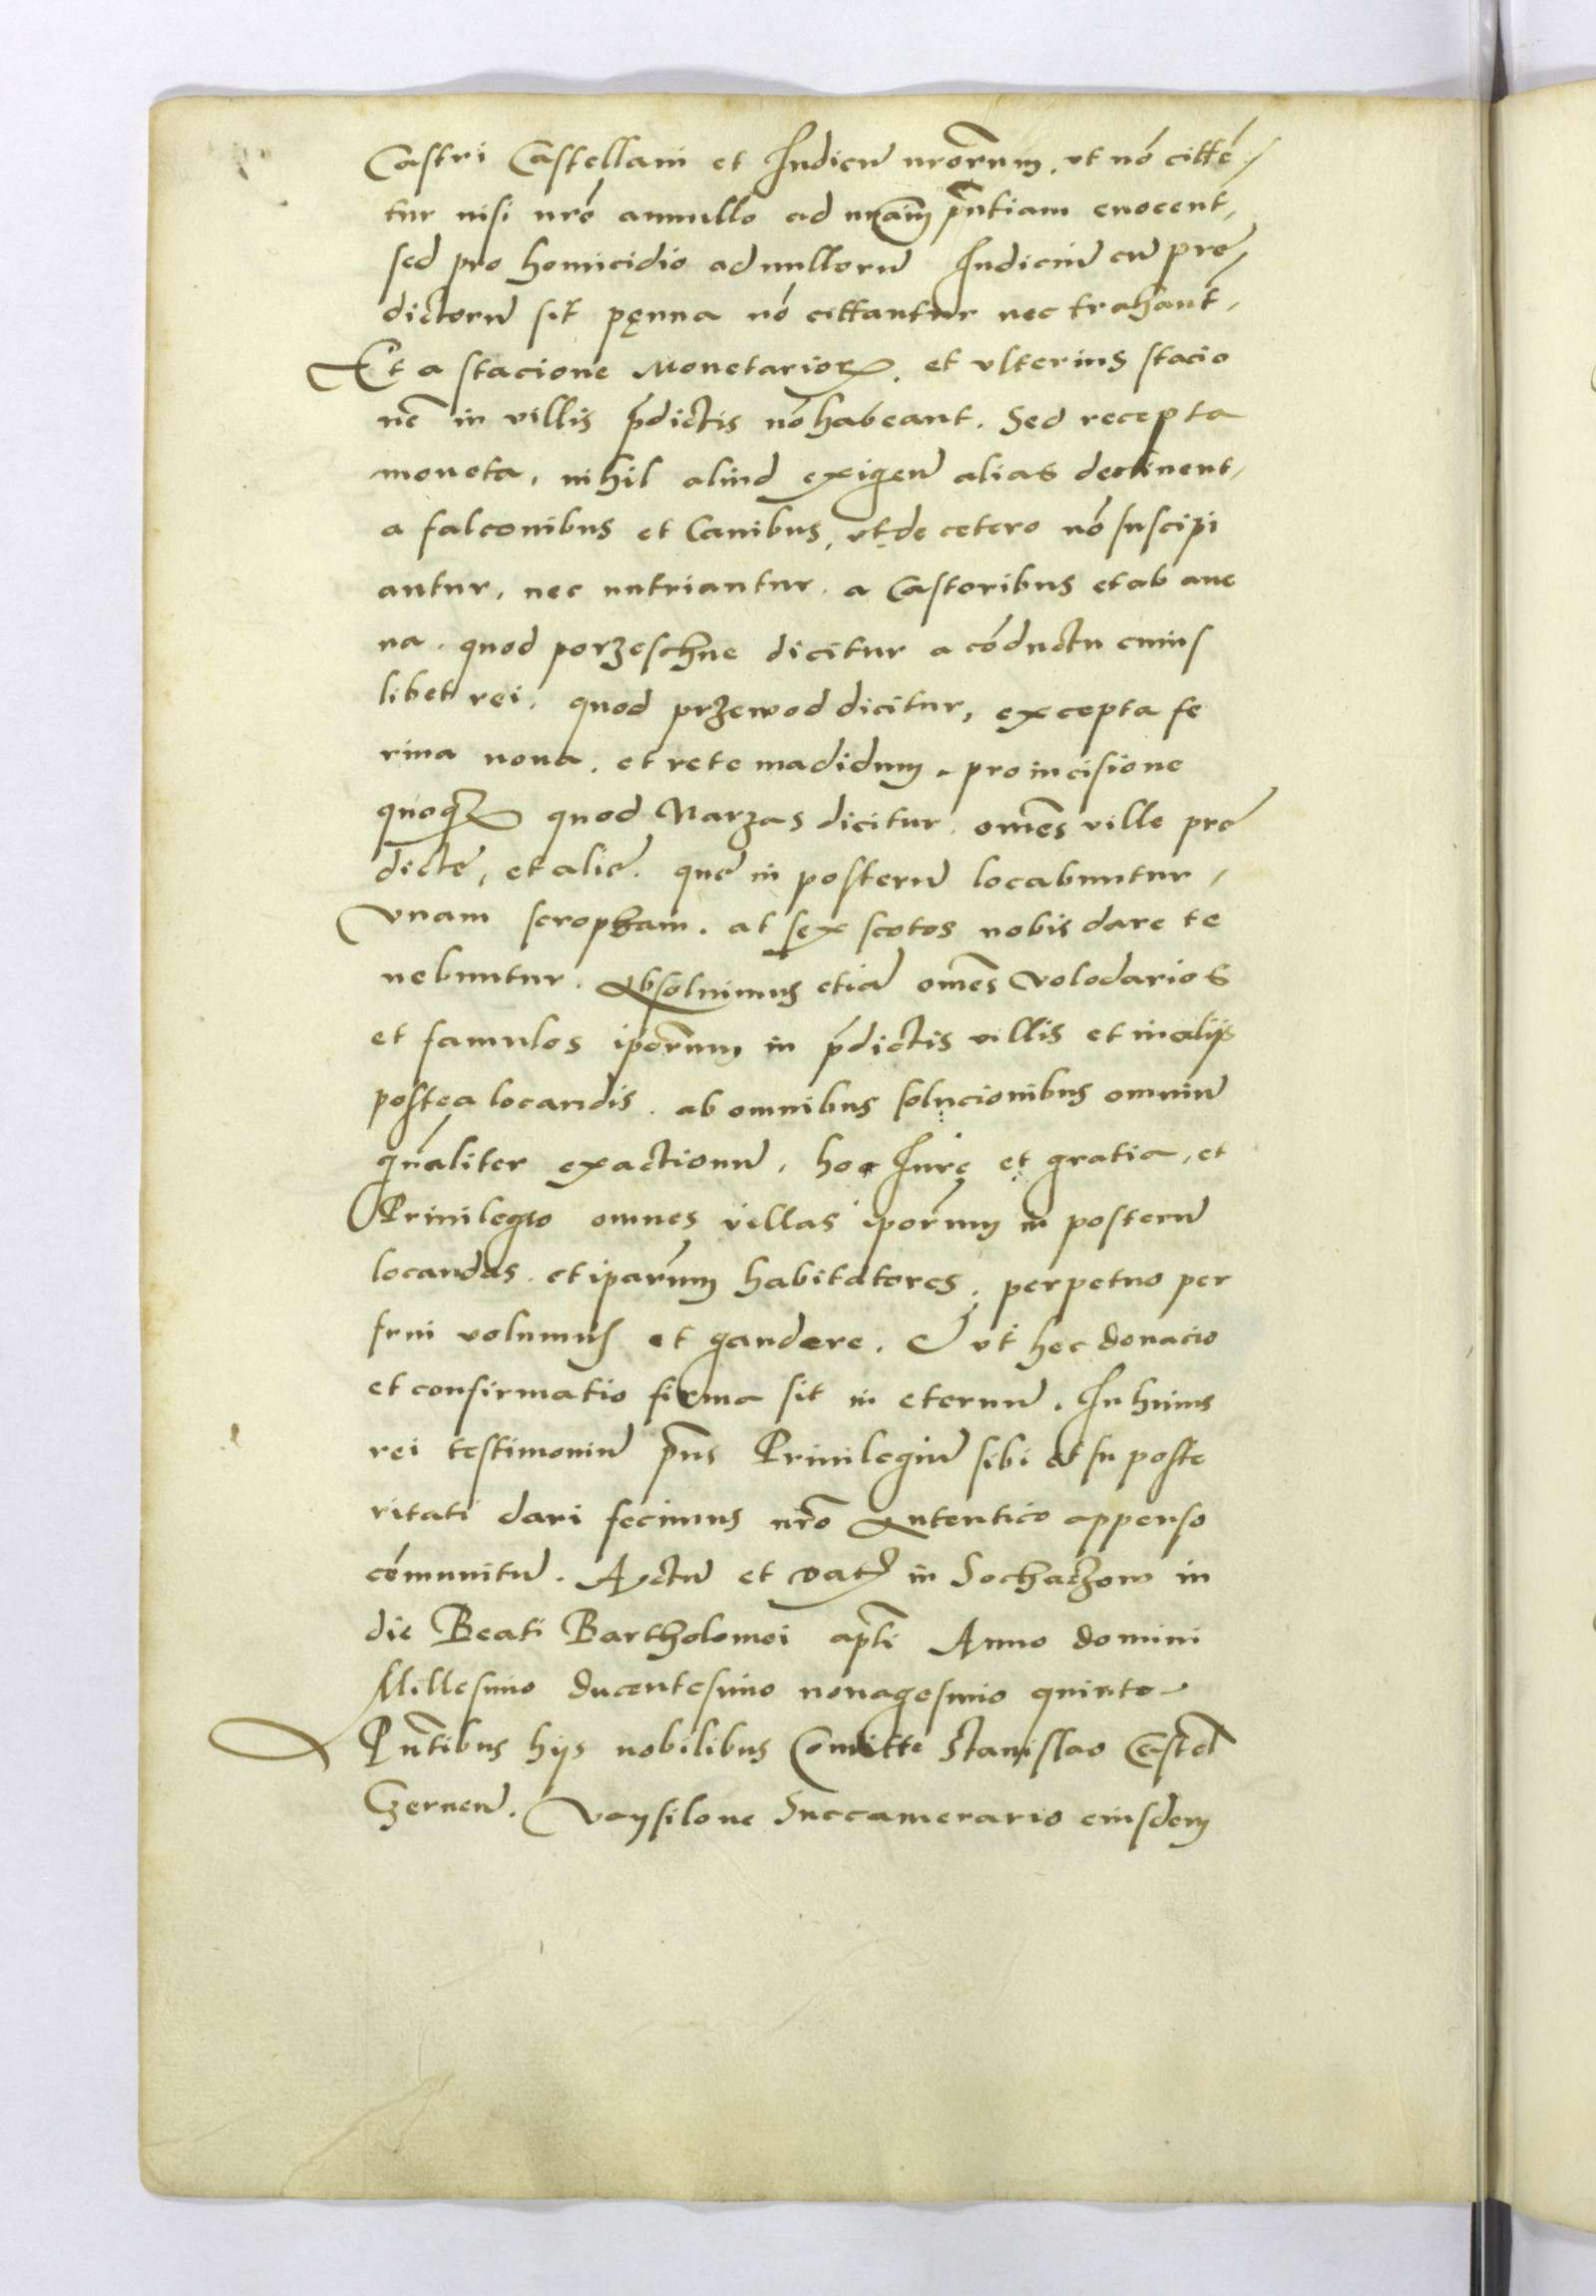 Castri Castellani et Iudicũ nrõrum, vt nõ citté-
tur nisi nrõ annullo ad nrãm p̃ntiam euocent,
sed pro homicidio ad nullorũ Iudiciũ cũ pre-
dictorũ sit pęnna nõ cittantur nec trahant,
Et a stacione Monetarioꝝ, et vlterius stacio
nẽ in villis p̃dictis nõ habeant. Sed recepta
moneta, nihil aliud exigeñ alias declinent,
a falconibus et Canibus, vt de cetero nõ suscipi
antur, nec nutriantur, a Castoribus et ab aue
na, quod porzeschne dicitur a cõductu cuius
libet rei, quod przewod dicitur, excepta fe
rina noua, et rete madidum, pro incisione
quoqꝫ quod Narzas dicitur, omẽs ville pre
dicte, et alie, que in posterũ locabuntur,
Vnam scropham, at sex scotos nobis dare te
nebuntur. Absoluimus etiã omẽs Volodarios
et famulos ip̃orum in p̃dictis villis et in alijs
postea locandis, ab omnibus solucionibus omniũ
qũaliter exactionũ, hoc Iure et gratia, et
Priuilegio omnes villas ip̃orum in posterũ
locandas, et ip̃arum habitatores, perpetuo per
frui volumus et gaudere. Et vt hec donacio
et confirmatio firma sit in eternũ. In huius
rei testimoniũ p̃ns Priuilegiũ sibi et su poste
ritati dari fecimus nrõ Autentico appenso
cõmunitũ. Actũ et dat in Sochaczow in
die Beati Bartholomei ap̃ti Anno domini
Millesimo ducentesimo nonagesimo quinto
Pñtibus hijs nobilibus Comitte Stanislao Castel
Czerneñ. Voysilone Succamerario eiusdem